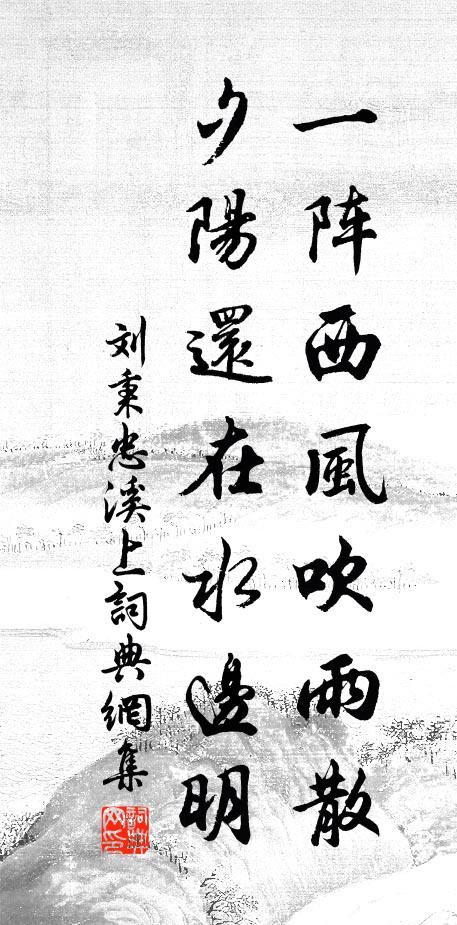 一阵西風吹雨散
夕陽還在水邊明
刘秉忠溪上詞典網集